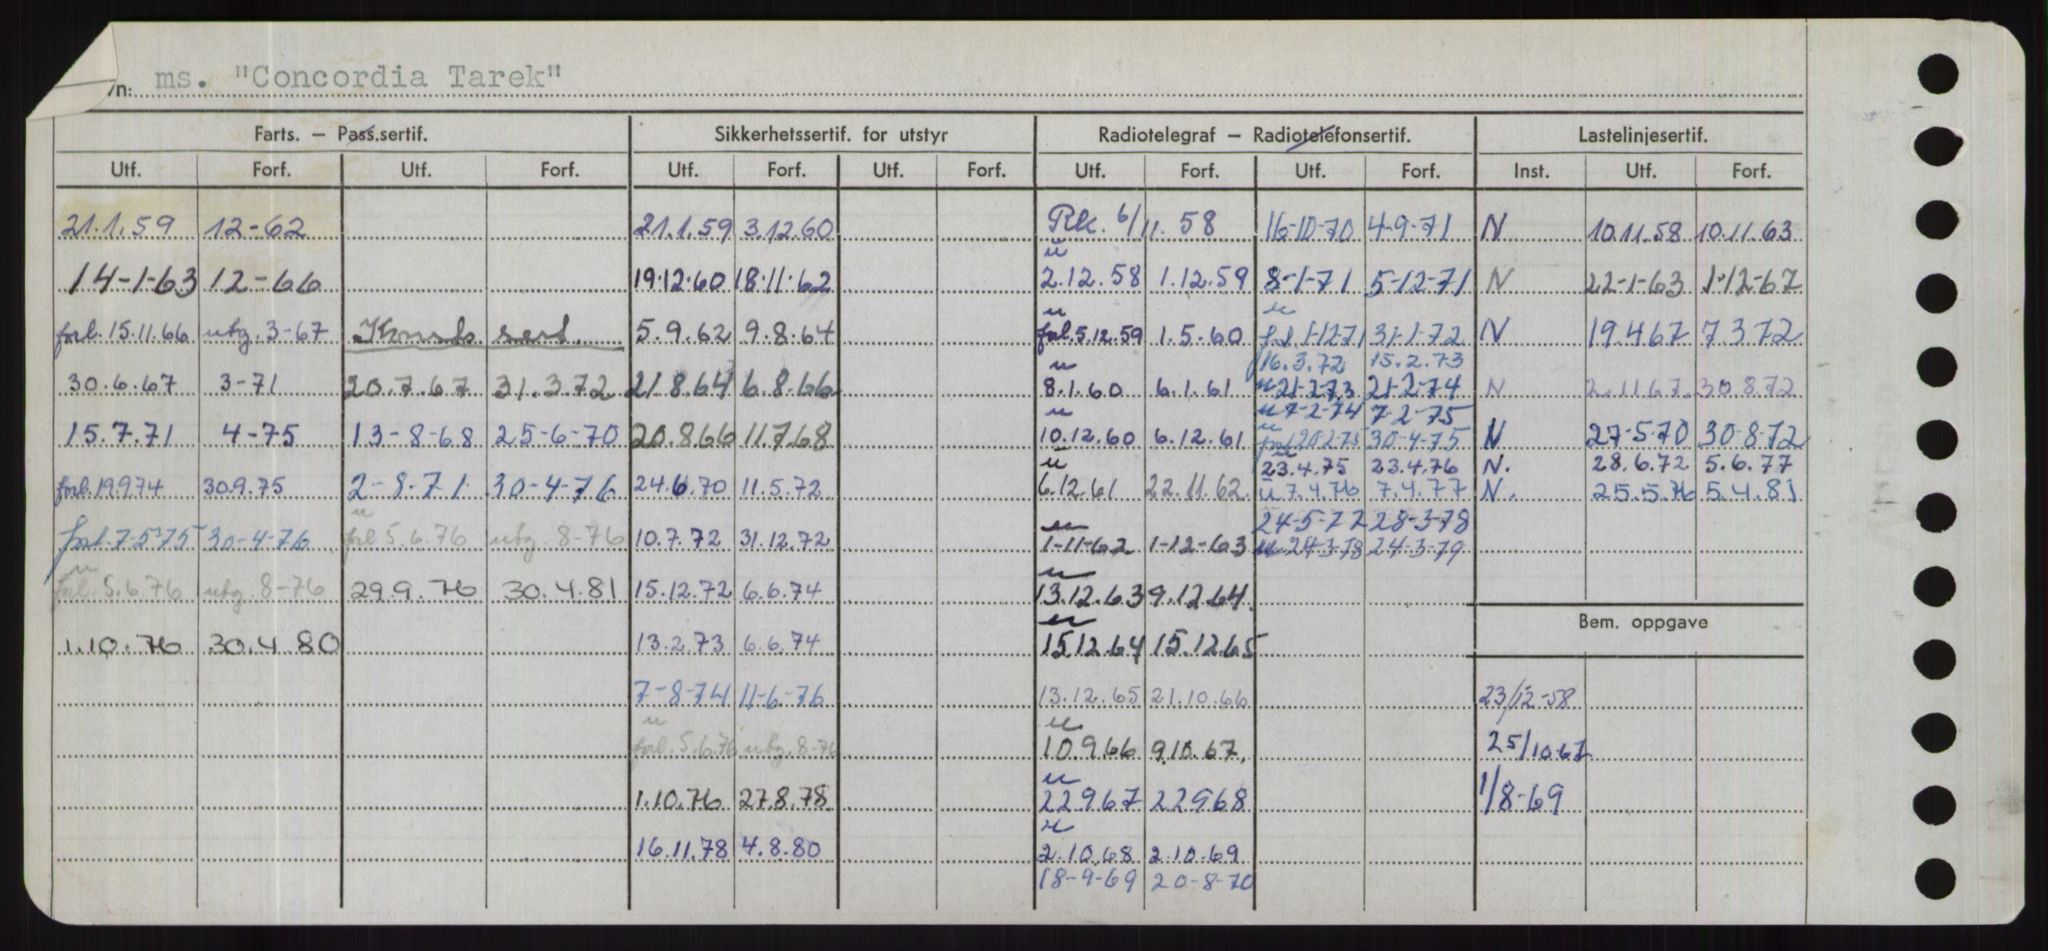 /n: ms. "Concordia Tarek"
Farts. — Pass.sertif. Sikkerhetssertif. for utstyr Radiotelegraf — Radiotelefonsertif. Lastelinjesertif.
Utf. Forf. Utf. Forf. Utf. Forf. Utf. Forf. Utf. Forf. Utf. Forf. Inst. Utf. Forf.
21.1.59 12-62 21.1.59 3.12.60 Rk. 6/11. 58 16-10-70 4-9-71 N 10.11.58 10.11.63
u
14-1-63 12-66 19.12.60 18.11.62 2.12.58 1.12.59 8-1-71 5-12-71 N 22-1-63 1-12-67
u u
forl. 15.11.66 utg. 3-67 Konst. sert. 5.9.62 9.8.64 forl. 5.12.59 1.5.60 forl. 1-12-71 31-1-72 N 19.4.67 7.3.72
u 16.3.72 15.2.73
30.6.67 3-71 20.7.67 31.3.72 21.8.64 6.8.66 8.1.60 6.1.61 u 21-2-73 21-2-74 N 2.11.67. 30.8.72
u u 7-2-74 7-2-75
15.7.71 4-75 13-8-68 25-6-70 20.8.66 11.7.68 10.12.60 6.12.61 u forl. 20-2-75 30-4-75 N 27-5-70 30-8-72
u u 23.4.75 23.4.76 N. 28.6.72 5.6.77
forl. 19.9.74 30.9.75 2-8-71 30-4-76 24.6.70 11.5.72 6.12.61 22.11.62. u 7.4.76 7.4.77 N. 25.5.76 5.4.81
u u 24-5-77 28-3-78
forl. 7-5-75 30-4-76 forl. 5.6.76 utg. 8-76 10.7.72 31.12.72 1-11-62 1-12-63 u 24-3-78 24-3-79
u u
forl. 5.6.76 utg. 8-76 29.9.76 30.4.81 15.12.72 6.6.74 13.12.63 9.12.64.
u
Bem. oppgave
1.10.76 30.4.80 13.2.73 6.6.74 15.12.64 15.12.65
7-8-74 11-6-76 13.12.65 21.10.66 23/12-58
u u
forl. 5.6.76 utg. 8-76 10.9.66 9.10.67. 25/10-67
u
1.10.76 27.8.78 22.9.67 22.9.68 1/8-69
u
16.11.78 4.8.80 2.10.68 2.10.69
18-9-69 20-8-70